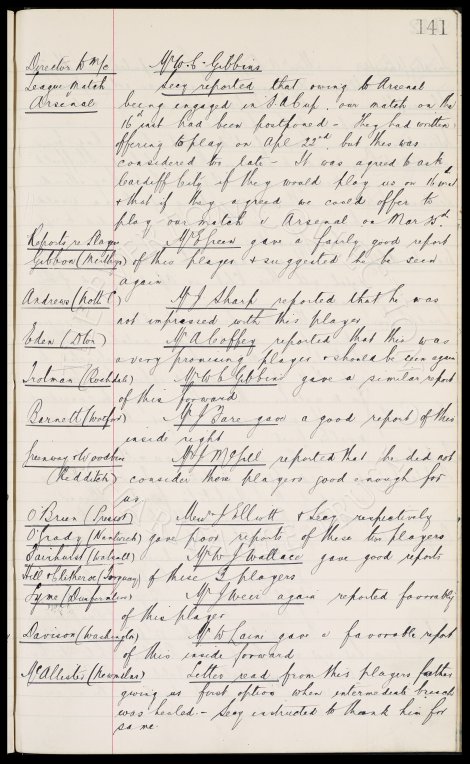 141
Director to M/c Mr W. C. Gibbins
League Match Secy reported that owing to Arsenal
v Arsenal being engaged in F.A Cup, our match on the
16th inst had been postponed - They had written
offering to play on Apl 22nd, but this was
considered too late - It was agreed to ask
Cardiff City if they would play us on 16th inst
& that if they agreed we could offer to
play our match v Arsenal on Mar
Reports re Players Mr E Green gave a fairly good report
Gibbon (Merthyr) of this player & suggested he be seen
again
Andrews (Notts C) Mr J Sharp reported that he was
not impressed with this player
Eden (Dbn) Mr A Coffey reported that this was
a very promising player & should be seen again
Trotman (Rochdale) Mr W C Gibbins gave a similar report
of this forward
Barnett (Watford) Mr J Fare gave a good report of this
inside right
Greenway & Woodbine Mr J McGill reported that he did not
Redditch) consider these players good enough for
us
O'Brien (Prescot) Messrs J Elliott & Secy respectively
O'Grady (Nantwich) gave poor reports of these two players
Fairhurst (Walsall) Mr W J Wallace gave good reports
Hill & Clitheroe (Torquay) of these 3 players
Syme (Dunfermline) Mr J Weir again reported favorably
of this player
Davison (Washington) Mr W Laine gave a favorable report
of this inside forward
McAllister (Newmilns) Letter read from this players father
giving us first option when intermediate breach
was healed - Secy instructed to thank him for
same